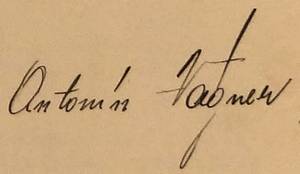 Antonín Vagner